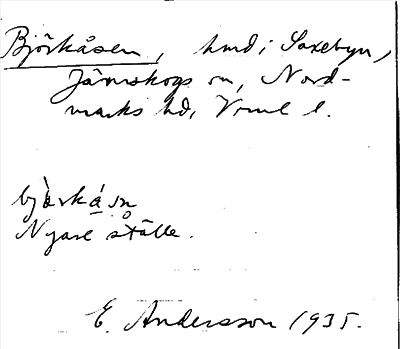 Björkåsen, hmd i Saxebyn,
Järnskogs sn, Nord-
marks hd, Vrml l.
bjàrkásn
Nyare ställe.
E. Andersson 1935.